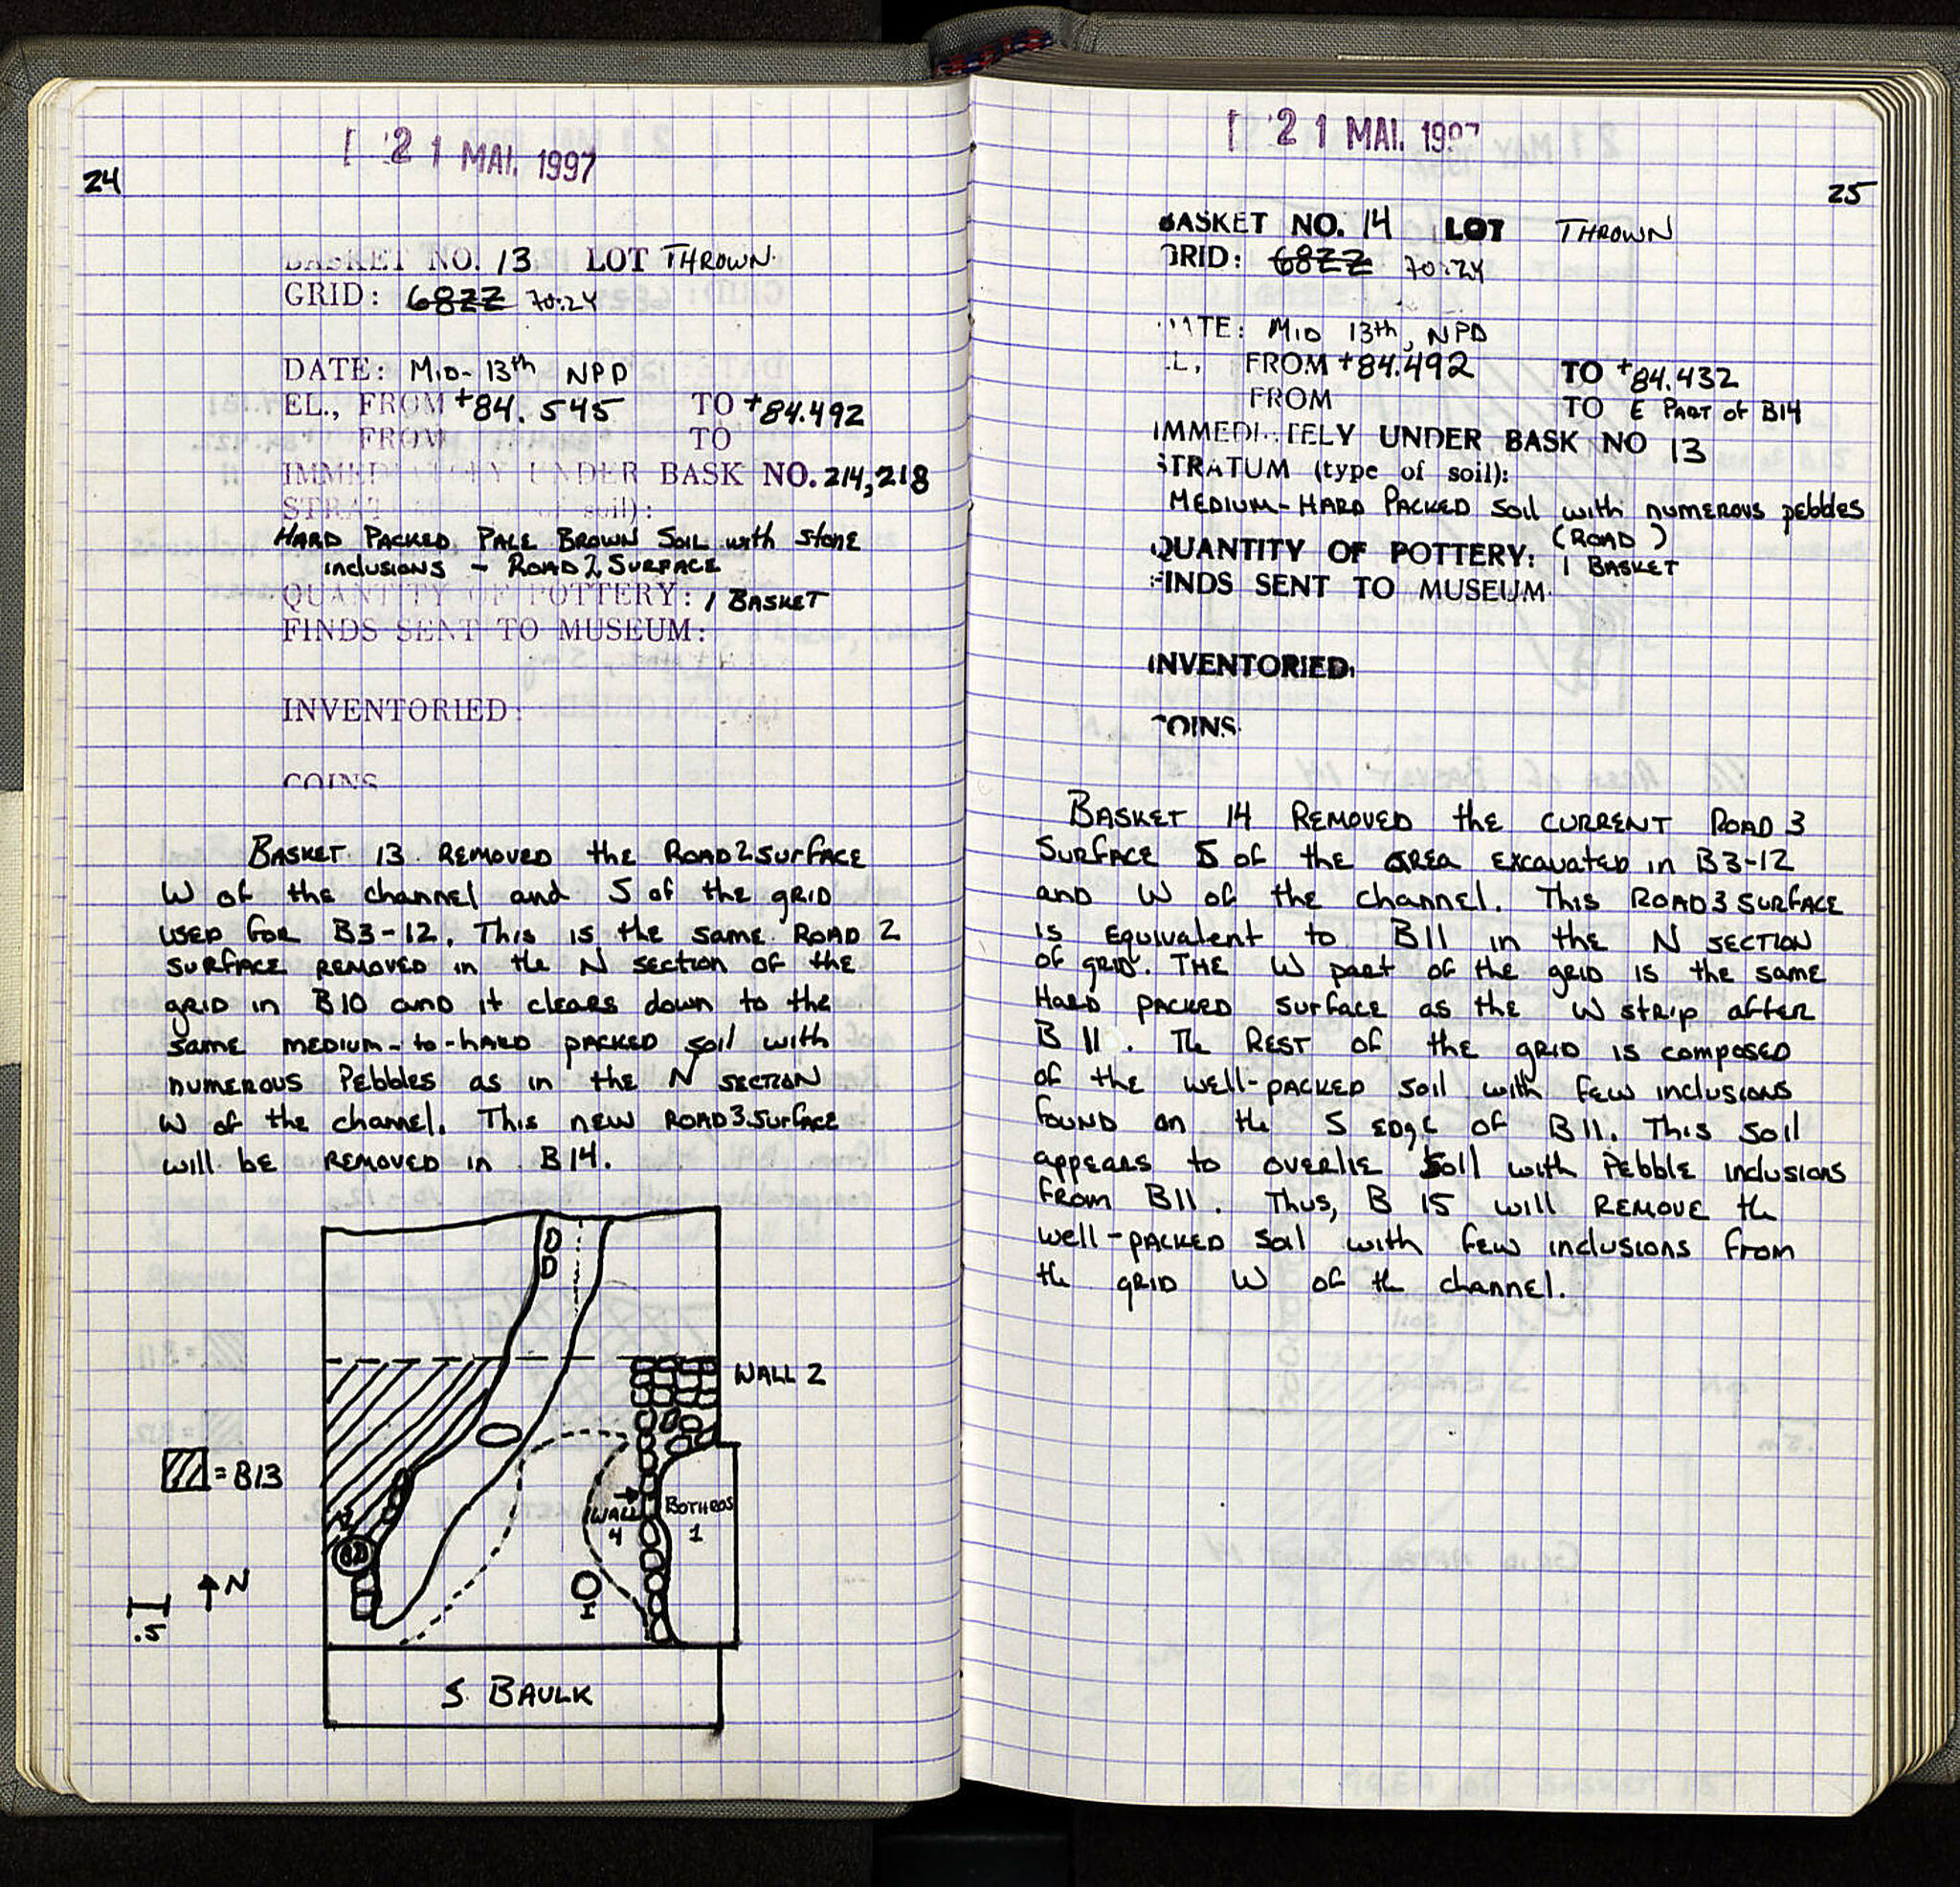 21 MAI. 1997
24
BASKET NO. 13 LOT THROWN.
GRID: 68ZZ 70:ZY
DATE: MID-13th NPD
EL., FROM +84.545 TO +84.492
FROM TO
IMMEDIATELY UNDER BASK NO. 214,218
STRAT soil):
HARD PACKED PALE BROWN SOIL with stone
inclusions - ROAD 2 SURFACE
QUANTITY OF POTTERY: 1 BASKET
FINDS SENT TO MUSEUM:
INVENTORIED:
COINS
BASKET 13 REMOVED the ROAD 2 SURFACE
W of the channel and S of the GRID
USED FOR B3-12. This is the same ROAD 2
SURFACE REMOVED in the N section of the
grid in B10 and it clears down to the
same MEDIUM-to-HARD packed soil with
NUMEROUS Pebbles as in the N SECTION
W of the channel. This new ROAD 3 Surface
will be REMOVED in B14.
WALL 2
= B13
WALL
4
BOTHROS
1
N
.5
I
S. BAULK
21 MAI. 1997
25
BASKET NO. 14 LOT THROWN
GRID: 68ZZ 70:ZY
DATE: MID 13th, NPD
EL., FROM +84.492 TO +84.432
FROM TO E PART of B14
IMMEDIATELY UNDER BASK NO 13
STRATUM (type of soil):
MEDIUM-HARD PACKED soil with numerous pebbles
(ROAD)
QUANTITY OF POTTERY: 1 BASKET
FINDS SENT TO MUSEUM
INVENTORIED
COINS
BASKET 14 REMOVED the CURRENT ROAD 3
SURFACE S of the area EXCAVATED in B3-12
and W of the channel. This ROAD 3 SURFACE
is Equivalent to B11 in the N SECTION
of grid. THE W part of the grid is the same
HARD PACKED surface as the W strip after
B 11. The REST of the grid is composed
of the well-packed soil with few inclusions
found on the S EDGE of B11. This soil
appears to overlie soil with Pebble inclusions
from B11. Thus, B 15 will REMOVE the
well-packed soil with few inclusions from
the grid W of the channel.